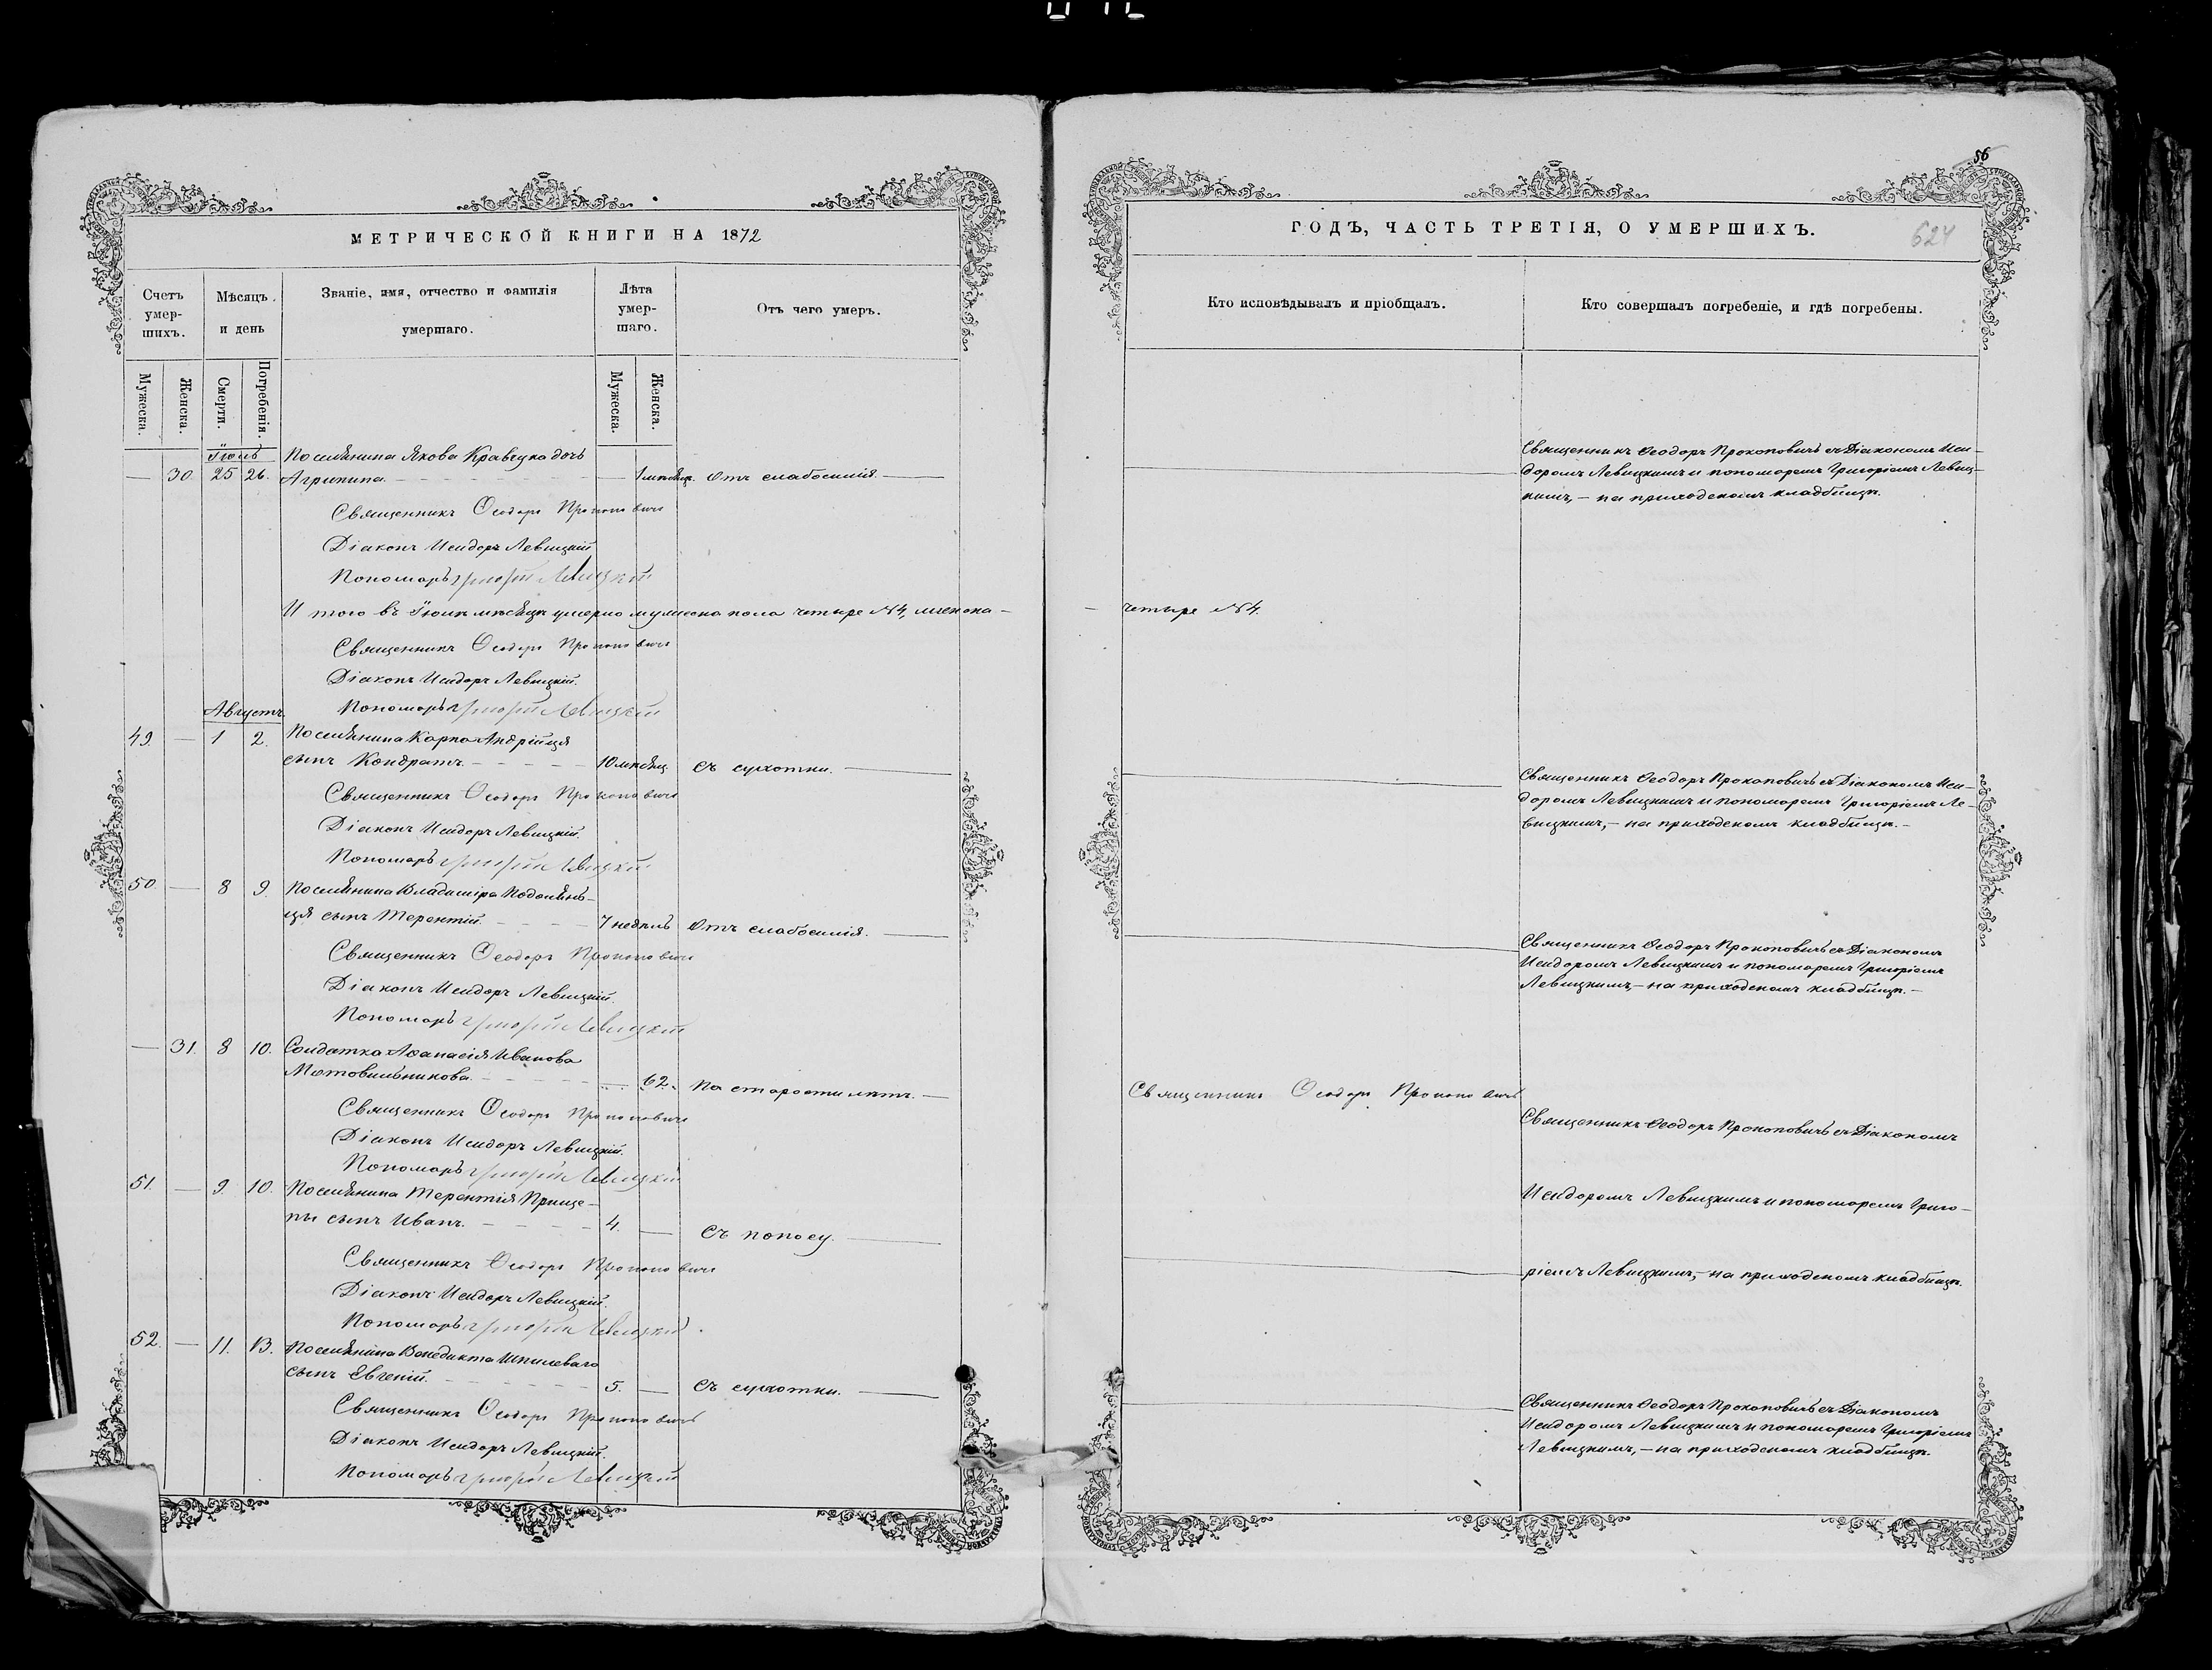 МЕТРИЧЕСКОЙ КНИГИ НА 1872
Счетъ умер-шихъ.
Мѣсяцъ и день
Званіе, имя, отчество и фамилія умершаго.
Лѣта умер-шаго.
Отъ чего умеръ.
Мужеска.
Женска.
Смерти.
Погребенія.
Мужеска.
Женска.
Іюль
Поселянина Якова Кравчука дочь
— 30. 25 26. Агрипина. — 1 мѣсяц. Отъ слабосилія.
Священникъ Ѳеодоръ Прокоповичъ
Діаконъ Исидоръ Левицкій
Пономарь Григорій Левицкій
И того въ Іюлѣ мѣсяцѣ умерло мужеска пола четыре №4, женска —
Священникъ Ѳеодоръ Прокоповичъ
Діаконъ Исидоръ Левицкій.
Пономарь Григорій Левицкій
Августъ.
49. — 1 2. Поселянина Карпа Андрійця
сынъ Кондратъ. 10 мѣсяц. Съ сухотки.
Священникъ Ѳеодоръ Прокоповичъ
Діаконъ Исидоръ Левицкій.
Пономарь Григорій Левицкій
50. — 8 9. Поселянина Владиміра Подолянь-
ця сынъ Терентій. 7 недѣль Отъ слабосилія.
Священникъ Ѳеодоръ Прокоповичъ
Діаконъ Исидоръ Левицкій.
Пономарь Григорій Левицкій
— 31. 8 10. Солдатка Аѳанасія Иванова
Мотовильникова. — 62. По старости лѣтъ.
Священникъ Ѳеодоръ Прокоповичъ
Діаконъ Исидоръ Левицкій.
Пономарь Григорій Левицкій
51. — 9. 10. Поселянина Терентія Прище-
пы сынъ Иванъ. 4. — Съ поносу.
Священникъ Ѳеодоръ Прокоповичъ
Діаконъ Исидоръ Левицкій.
Пономарь Григорій Левицкій.
52. — 11. 13. Поселянина Венедикта Шпилеваго
сынъ Евгеній. 5. — Съ сухотки.
Священникъ Ѳеодоръ Прокоповичъ
Діаконъ Исидоръ Левицкій.
Пономарь Григорій Левицкій
56
ГОДЪ, ЧАСТЬ ТРЕТІЯ, О УМЕРШИХЪ.
624
Кто исповѣдывалъ и пріобщалъ.
Кто совершалъ погребеніе, и гдѣ погребены.
Священникъ Ѳеодоръ Прокоповичъ съ Діакономъ Иси-
доромъ Левицкимъ и пономаремъ Григоріемъ Левиц-
кимъ, — на приходскомъ кладбищѣ.
— четыре №4.
Священникъ Ѳеодоръ Прокоповичъ съ Діакономъ Иси-
доромъ Левицкимъ и пономаремъ Григоріемъ Ле-
вицкимъ, — на приходскомъ кладбищѣ. —
Священникъ Ѳеодоръ Прокоповичъ съ Діакономъ
Исидоромъ Левицкимъ и пономаремъ Григоріемъ
Левицкимъ, — на приходскомъ кладбищѣ. —
Священникъ Ѳеодоръ Прокоповичъ
Священникъ Ѳеодоръ Прокоповичъ съ Діакономъ
Исидоромъ Левицкимъ и пономаремъ Григо-
ріемъ Левицкимъ, — на приходскомъ кладбищѣ.
Священникъ Ѳеодоръ Прокоповичъ съ Діакономъ
Исидоромъ Левицкимъ и пономаремъ Григоріемъ
Левицкимъ, — на приходскомъ кладбищѣ.